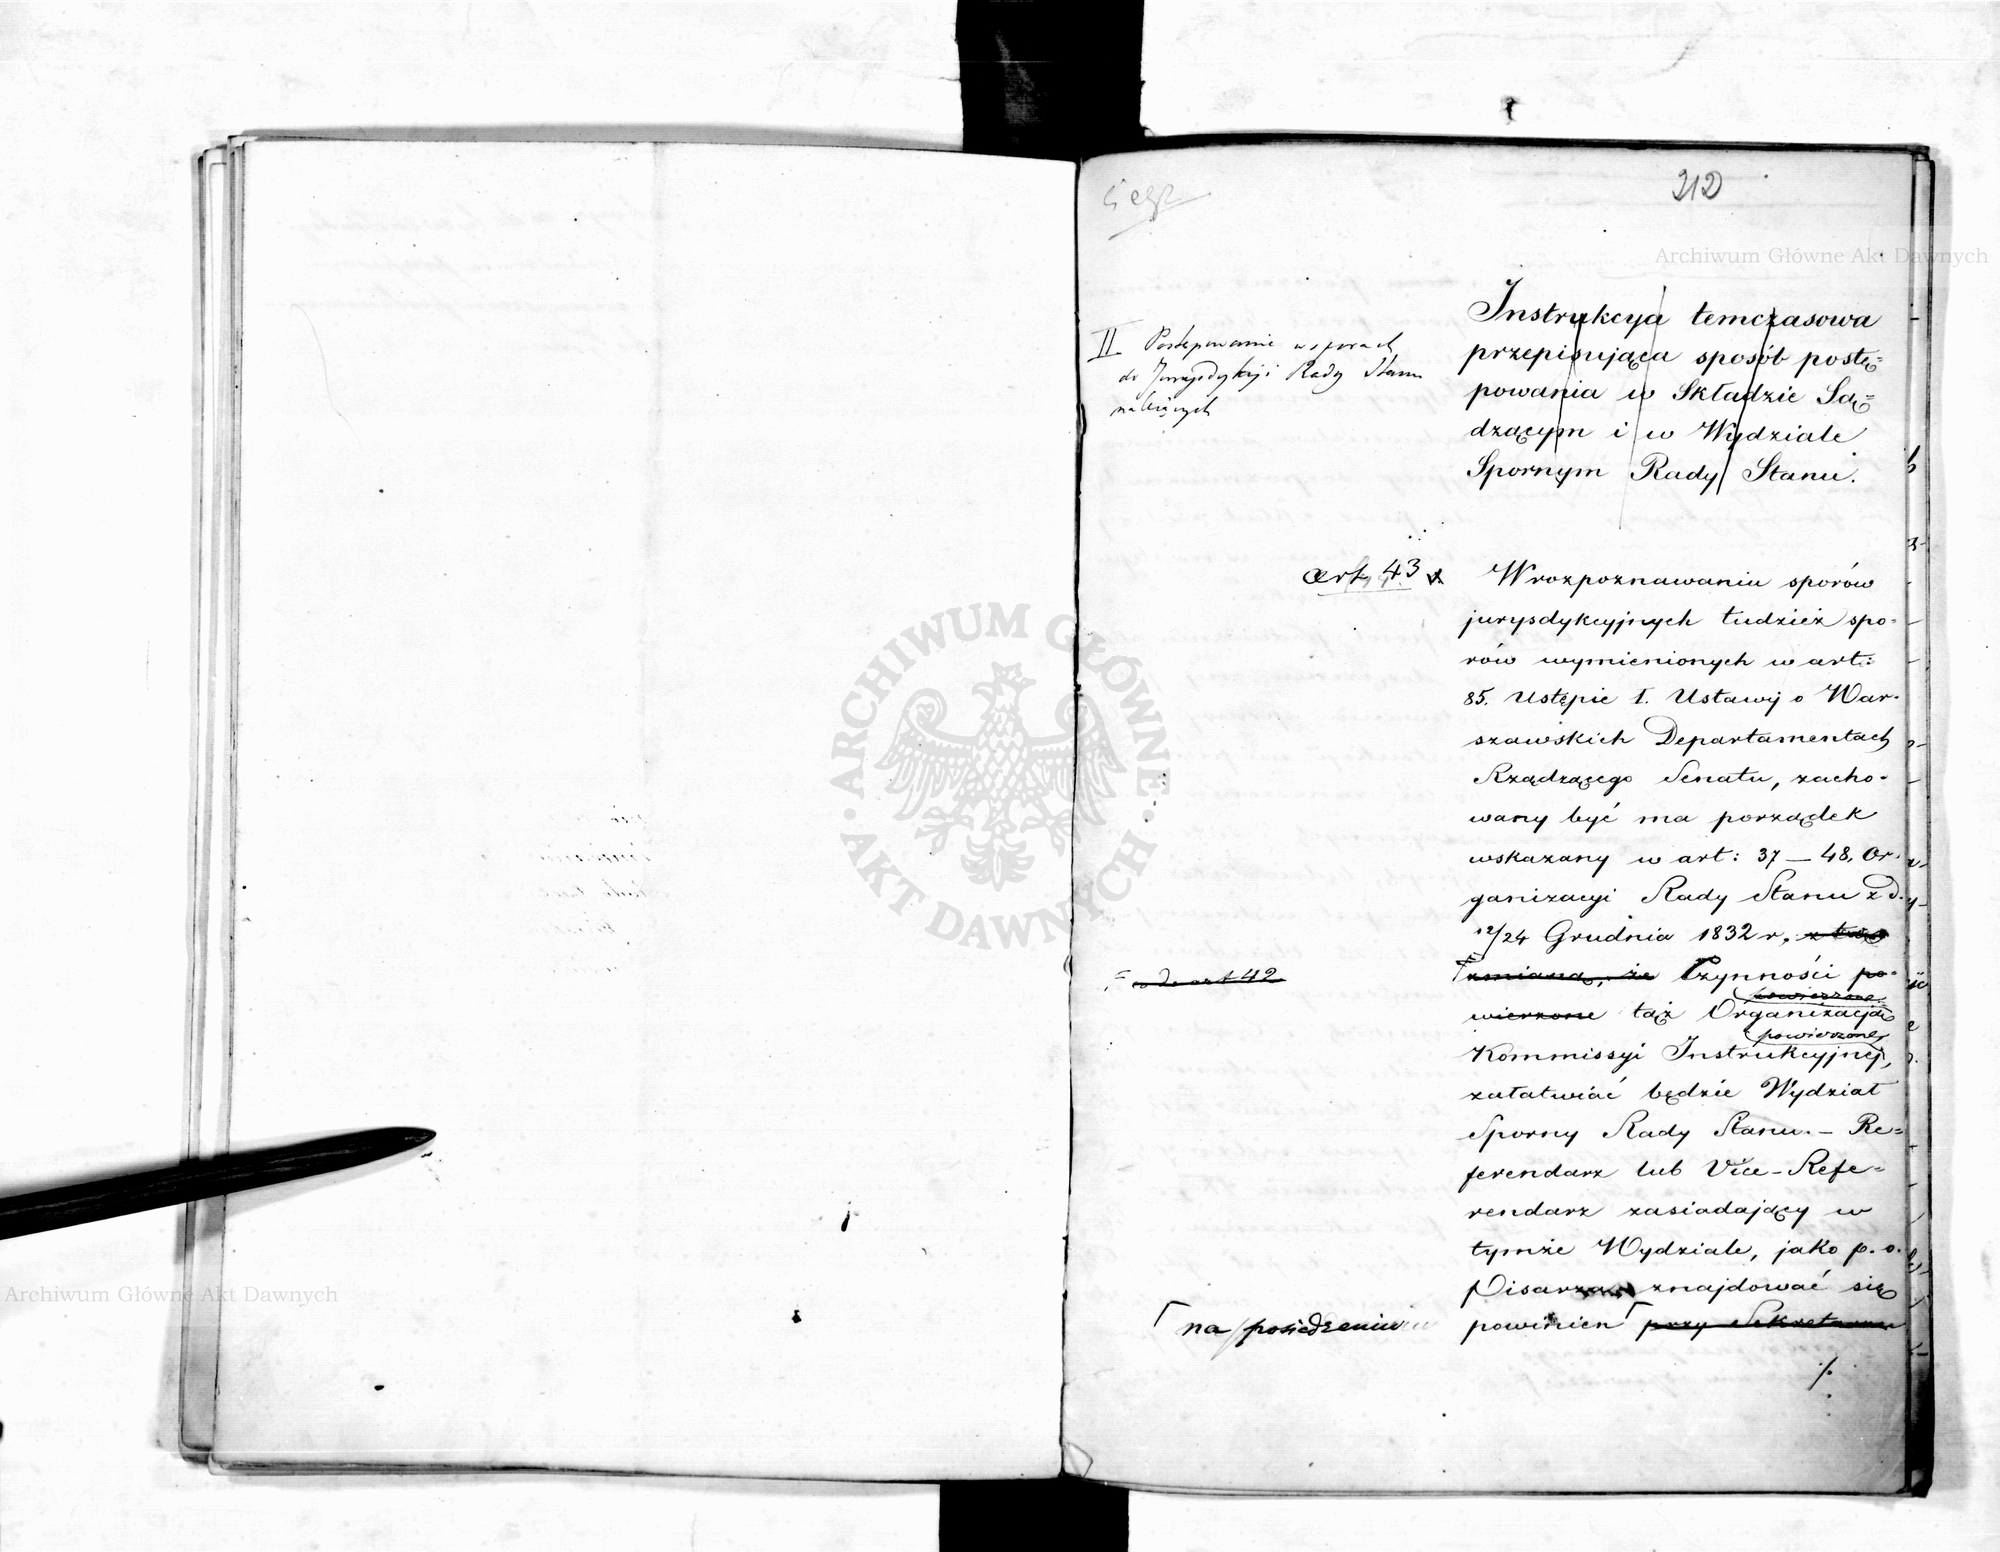 212
II Postępowanie w sporach
do Jurysdykcyi Rady Stanu
należących
Instrukcya temczasowa
przepisująca sposób postę=
powania w Składzie Są=
dzącym i w Wydziale
Spornym Rady Stanu.
art 43
W rozpoznawaniu sporów
jurysdykcyjnych tudzież spo-
rów wymienionych w art:
85. Ustępie I. Ustawy o War-
szawskich Departamentach
Rządzącego Senatu, zacho-
wany być ma porządek
wskazany w art: 37 – 48, Or-
ganizacyi Rady Stanu z d.
12/24 Grudnia 1832 r. z tą
art 42
zmianą, że Czynności po-
wierzone taż Organizacją
powierzone
Kommissyi Instrukcyjnej,
załatwiać będzie Wydział
Sporny Rady Stanu. – Re=
ferendarz lub Vice-Refe=
rendarz zasiadający w
tymże Wydziale, jako p. o.
Pisarza znajdować się
na posiedzeniu
powinien przy Sekretarzu
./.
Archiwum Główne Akt Dawnych
ARCHIWUM GŁÓWNE AKT DAWNYCH
Archiwum Główne Akt Dawnych